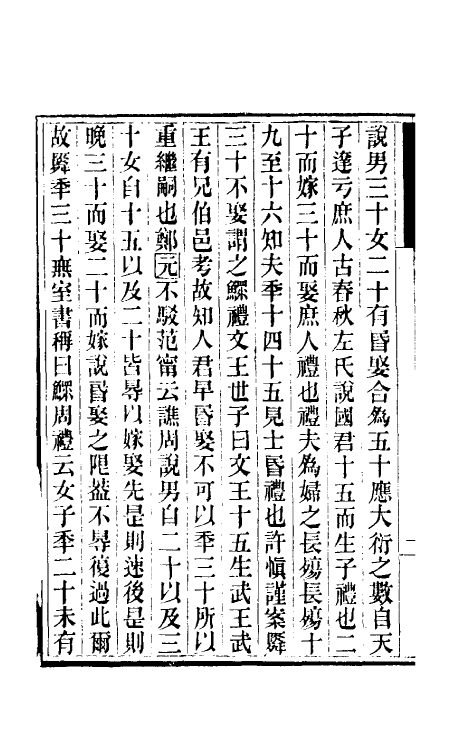 說男三十女二十有昏娶合爲五十應大衍之數自天
子達亏庶人古春秋左氏說國君十五而生子禮也二
十而嫁三十而娶庶人禮也禮夫爲婦之長殤長殤十
九至十六知夫秊十四十五見士昏禮也許愼謹案舜
三十不娶謂之鰥禮文王世子曰文王十五生武王武
王有兄伯邑考故知人君早昏娶不可以秊三十所以
重繼嗣也鄭元不駁范甯云譙周說男自二十以及三
十女自十五以及二十皆得以嫁娶先是則速後是則
晚三十而娶二十而嫁說昏娶之限葢不得復過此爾
故舜秊三十無室書稱曰鰥周禮云女子秊二十未有